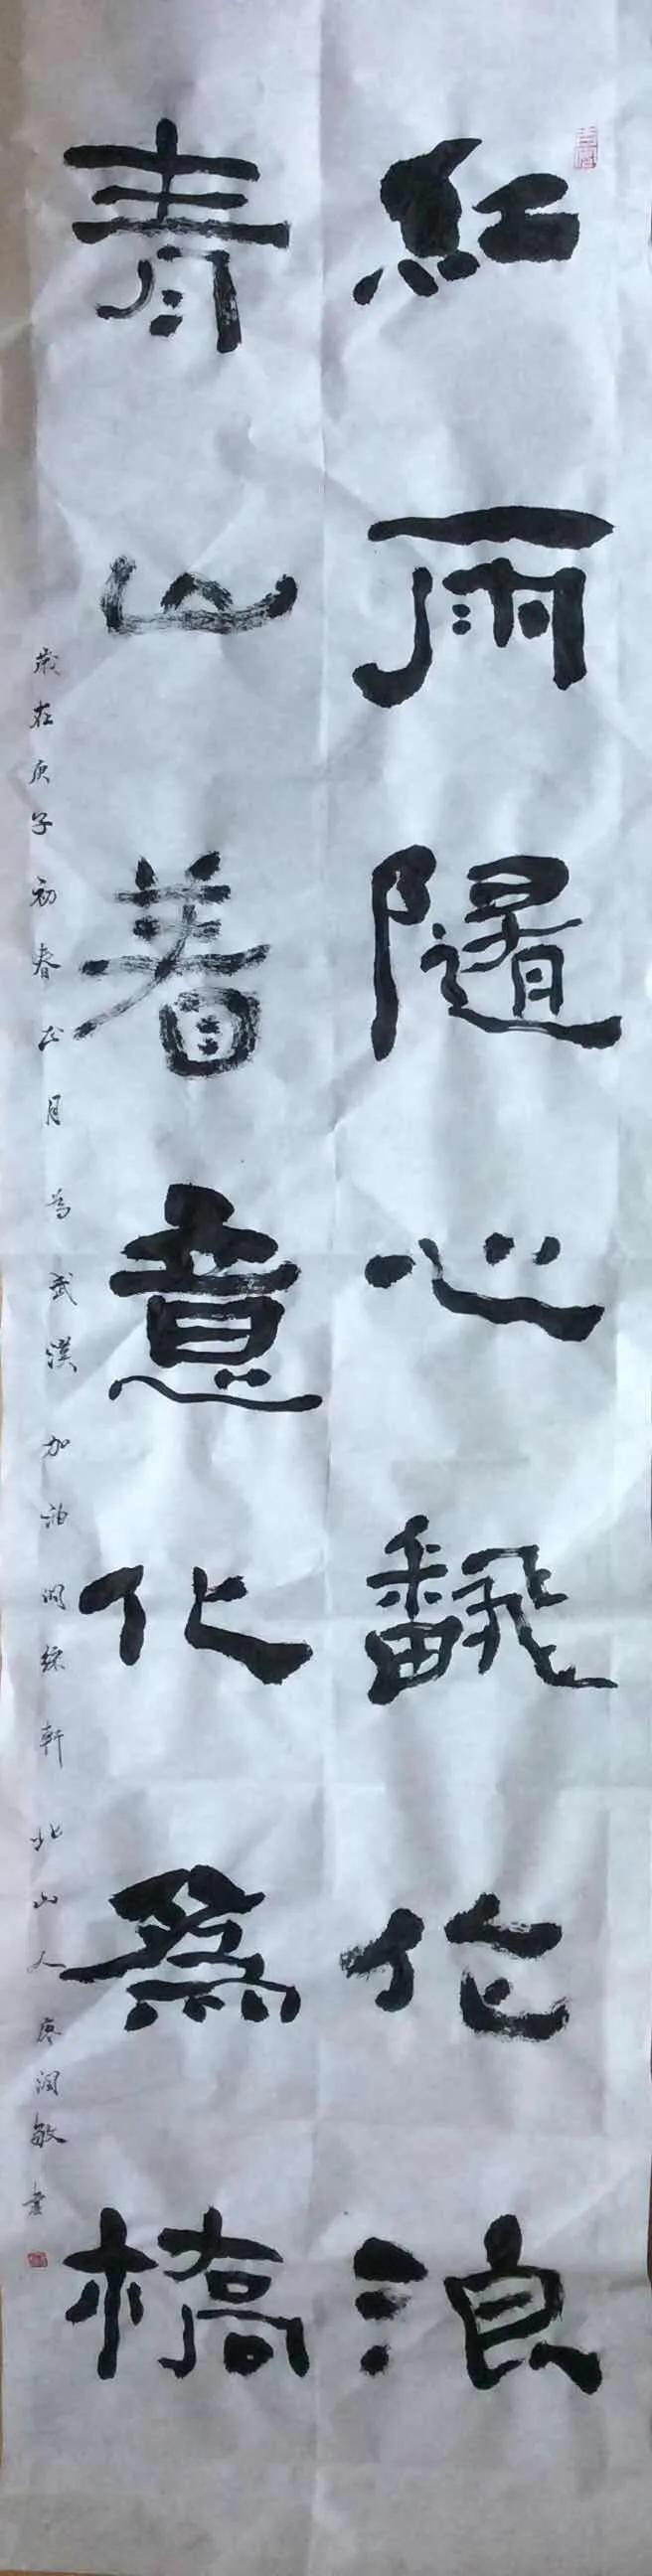 紅雨隨心飜作浪
青山着意化爲橋
歲在庚子初春正月為武漢加油軒北山人廖潤敏書